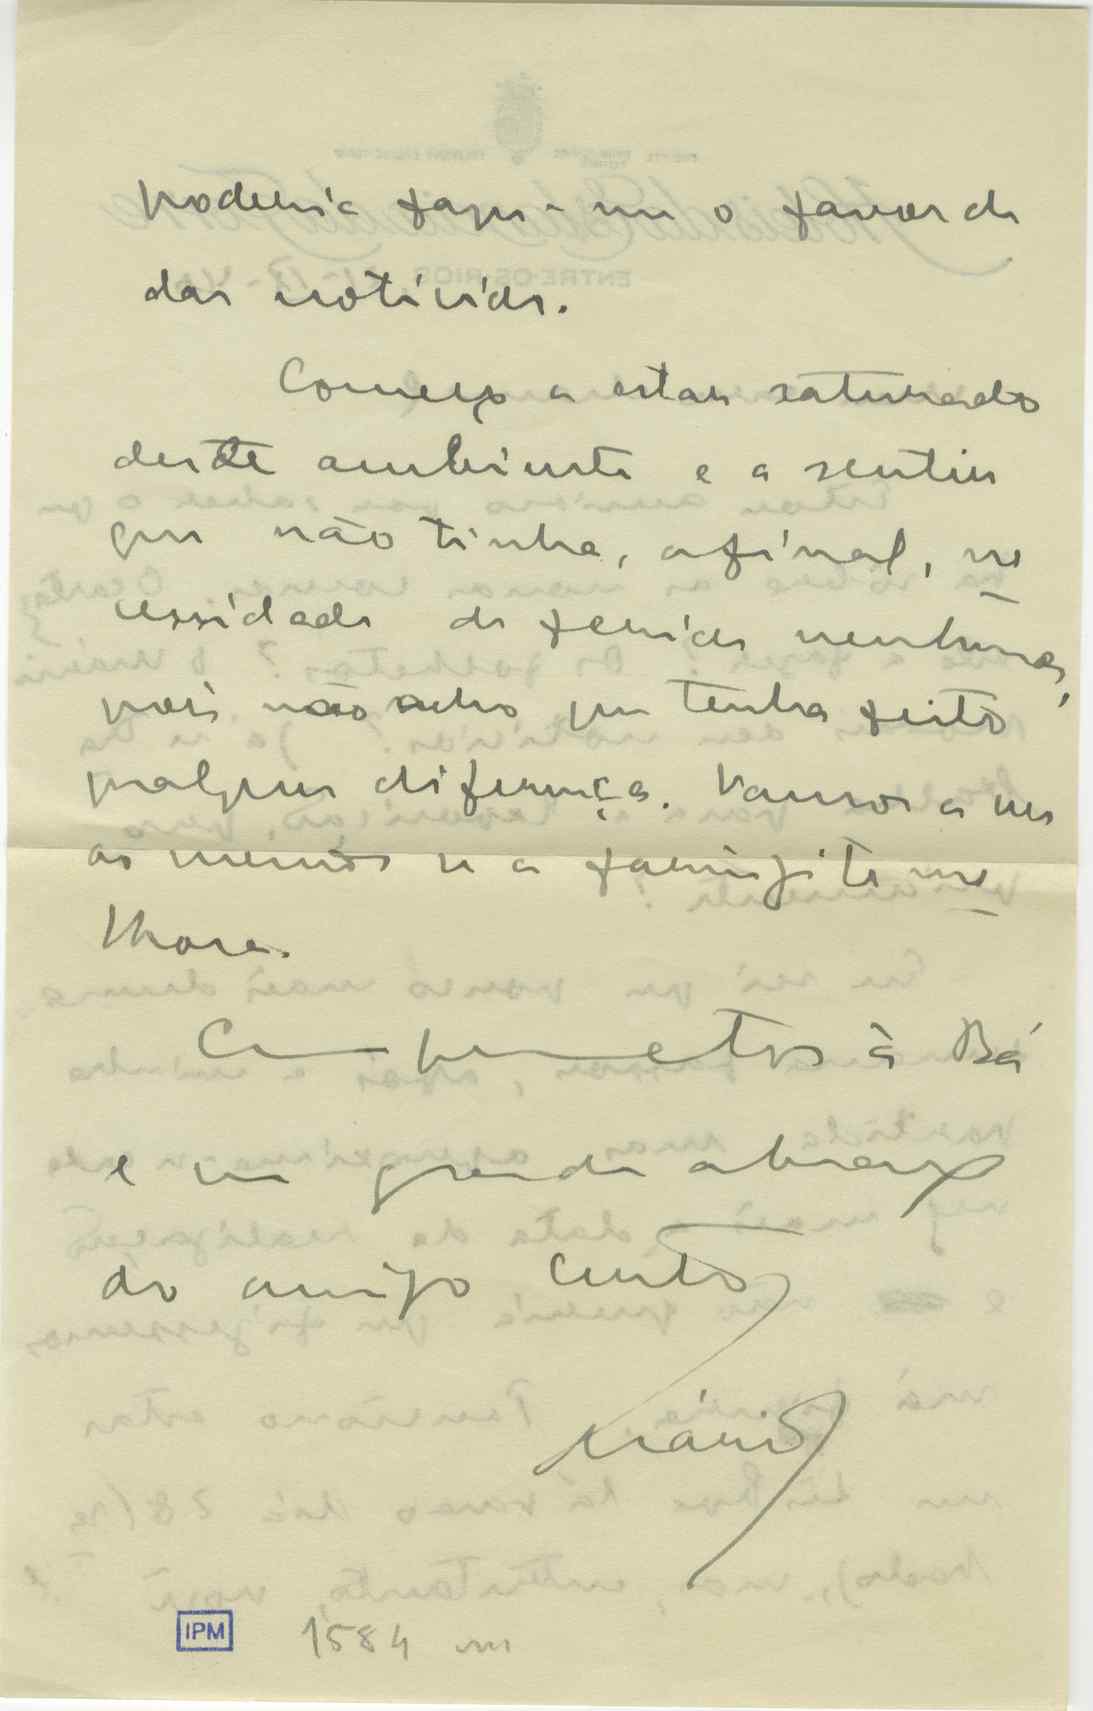 poderia fazer-me o favor de
dar notícias.
Começo a estar saturado
deste ambiente e a sentir
que não tinha, afinal, ne
cessidade de ferias nenhumas,
pois não acho que tenha feito
qualquer diferença. Vamos a ver
ao menos se a faringite me
lhora.
Cumprimentos à Bá
e um grande abraço
do amigo certo
Mário
IPM 1584 m